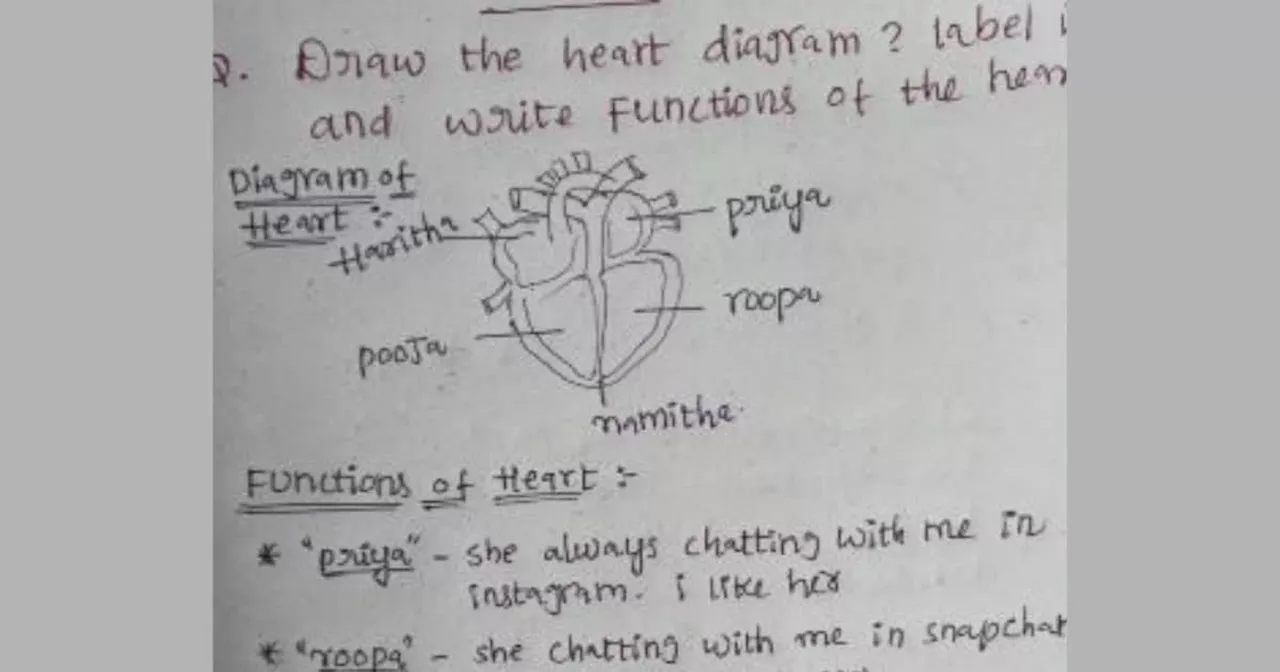 Q. Draw the heart diagram ? label i
and write Functions of the hear
Diagram of
Heart :-
Haritha
priya
roopa
pooJa
namitha
Functions of Heart :-
* "priya" - she always chatting with me in
instagram. i like her
* "roopa" - she chatting with me in snapchat